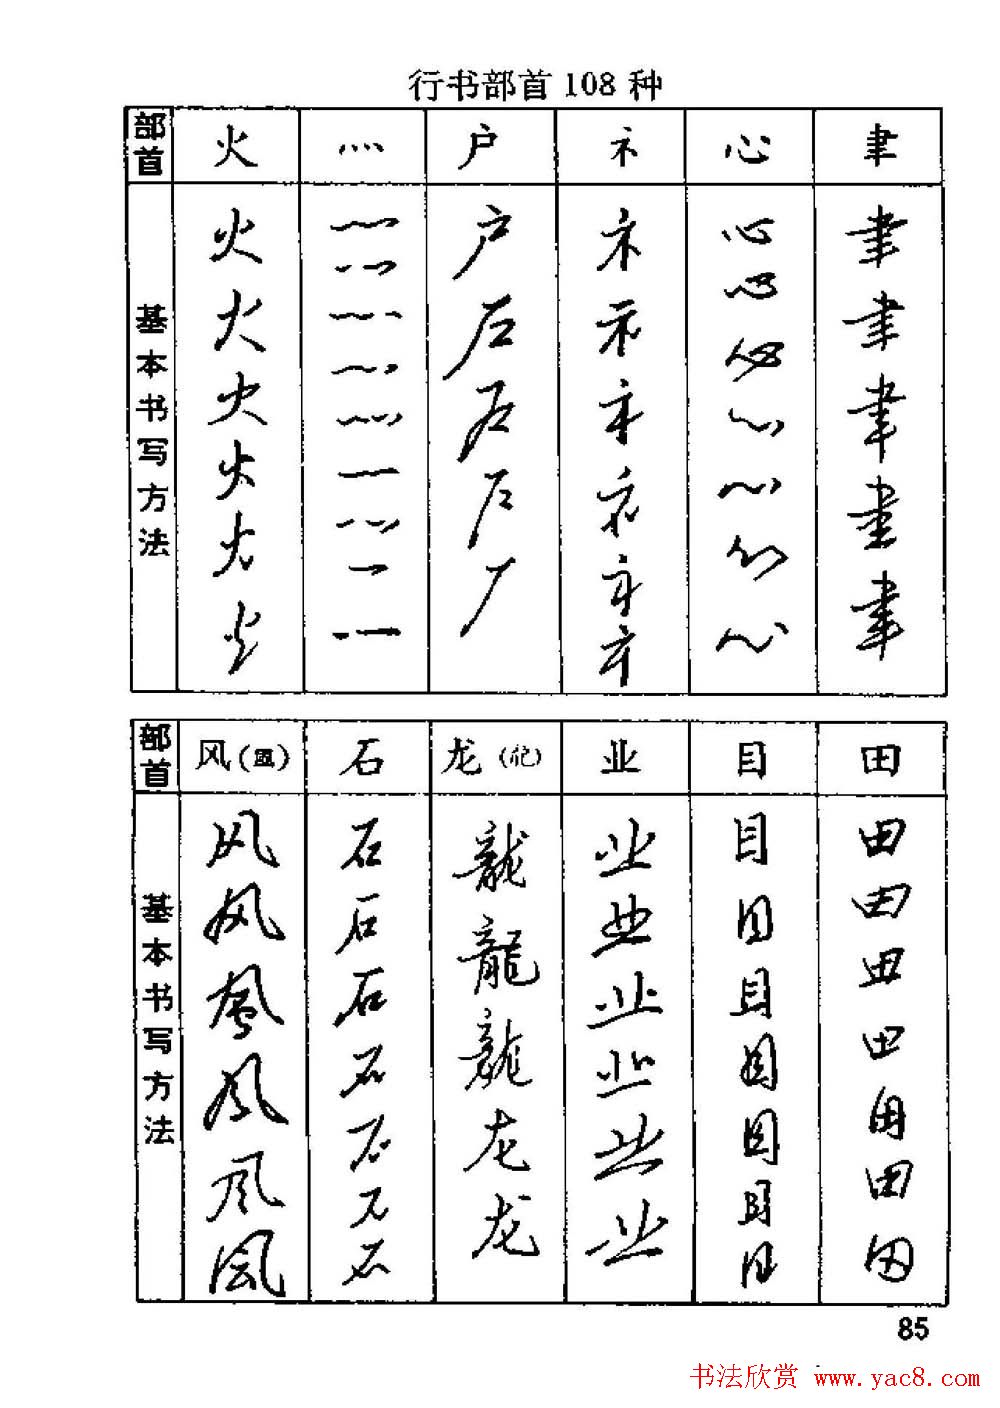 行书部首108种
部首 火 灬 户 礻 心 聿
基本书写方法
火 灬 户 礻 心 聿
火 灬 户 礻 心 聿
火 灬 户 礻 心 聿
火 灬 户 礻 心 聿
火 灬 户 礻 心 聿
火 灬 礻 心
灬 心
灬
灬
部首 风(𩙿) 石 龙 业 目 田
基本书写方法
风 石 龍 业 目 田
风 石 龍 业 目 田
風 石 龍 业 目 田
风 石 龙 业 目 田
风 石 龙 业 目 田
風 石 业 目 田
石 目 田
85
书法欣赏 www.yac8.com